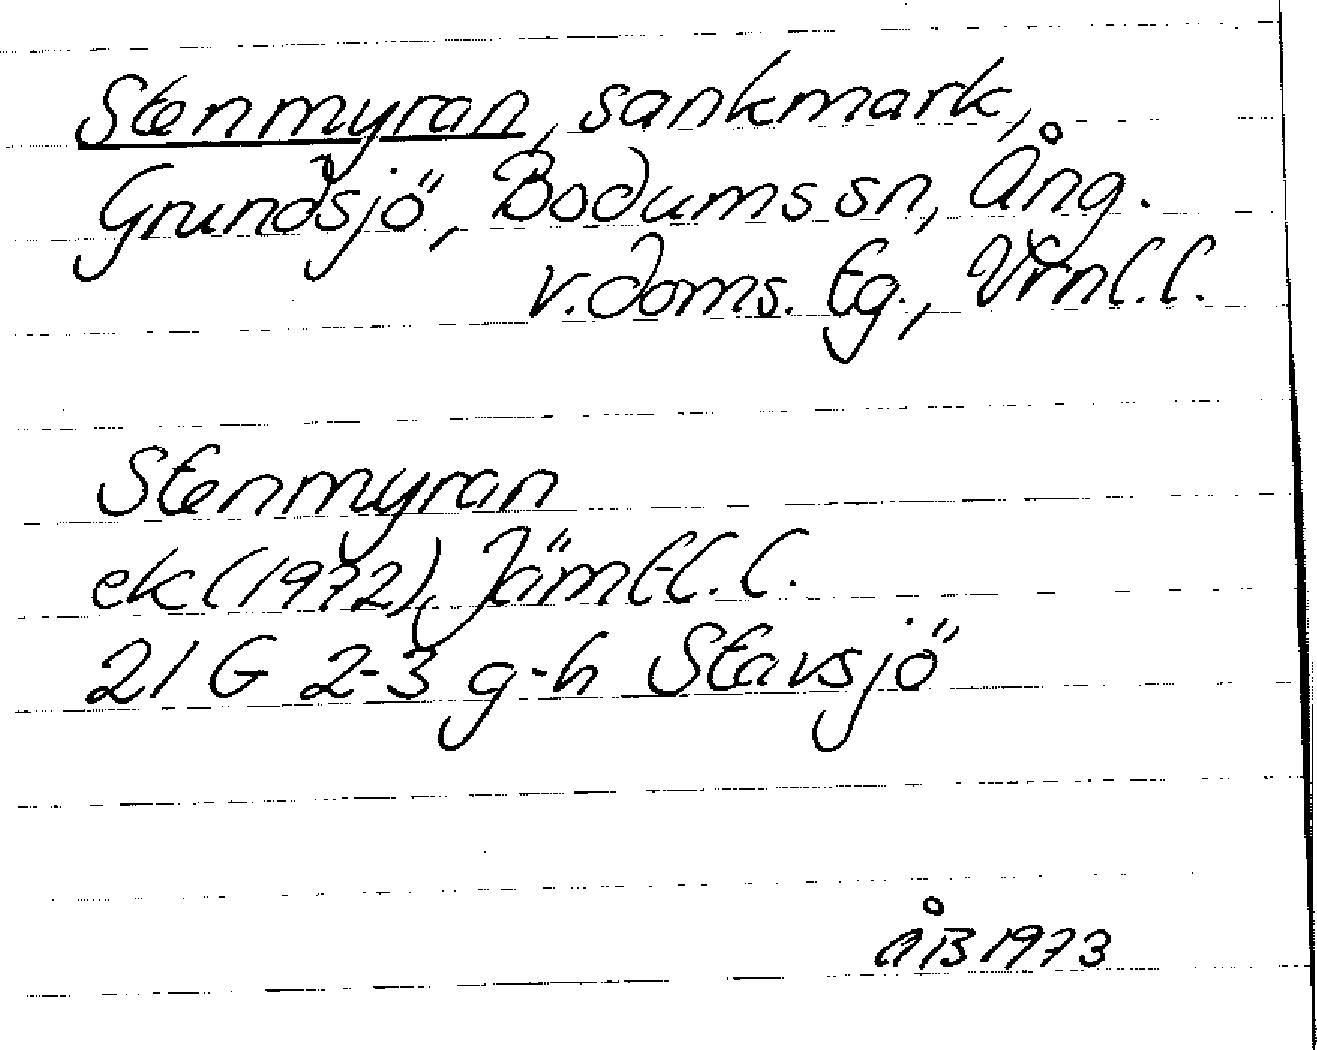 Stenmyran, sankmark,
Grundsjö, Bodums sn, Ång.
v. doms. tg., Vrnl. l.
Stenmyran
ek (1972), Jämtl. l.
21 G 2-3 g-h Stavsjö
ÅB 1973